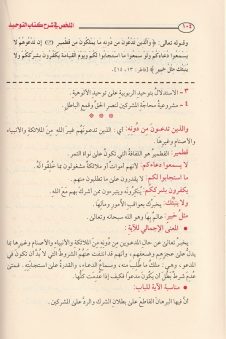 ١٠٤
الملخص في شرح كتاب التوحيد
وقوله تعالى: ﴿والذين تدعون من دونه ما يملكون من قطمير ۝ إن تدعوهم لا
يسمعوا دعاءكم ولو سمعوا ما استجابوا لكم ويوم القيامة يكفرون بشرككم ولا
ينبئك مثل خبير﴾ [فاطر: ١٣ - ١٤].
٣ - الاستدلال بتوحيد الربوبية على توحيد الألوهية.
٤ - مشروعية محاجة المشركين لنصر الحق وقمع الباطل.
* * *
والذين تدعون من دونه: أي: الذين تدعونهم غير الله من الملائكة والأنبياء
والأصنام وغيرها.
قطمير: القطمير هو اللفافة التي تكون على نواة التمر.
لا يسمعوا دعاءكم: لأنهم أموات أو ملائكة مشغولون بما خلقوا له.
ما استجابوا لكم: لا يقدرون على ما تطلبون منهم.
يكفرون بشرككم: ينكرونه ويتبرءون ممن أشرك بهم مع الله.
ولا ينبئك: يخبرك بعواقب الأمور ومآلها.
مثل خبير: عالم بها وهو الله سبحانه وتعالى.
• المعنى الإجمالي للآية:
يخبر تعالى عن حال المدعوين من دونه من الملائكة والأنبياء والأصنام وغيرها بما
يدل على عجزهم وضعفهم، وأنهم قد انتفت عنهم الشروط التي لا بد أن تكون
في المدعو وهي: ملك ما طلب منه، وسماع الدعاء، والقدرة على استجابته. فمتى
عدم شرط بطل أن يكون مدعوًا فكيف إذا عدمت كلها.
• مناسبة الآية للباب:
أن فيها البرهان القاطع على بطلان الشرك والرد على المشركين.